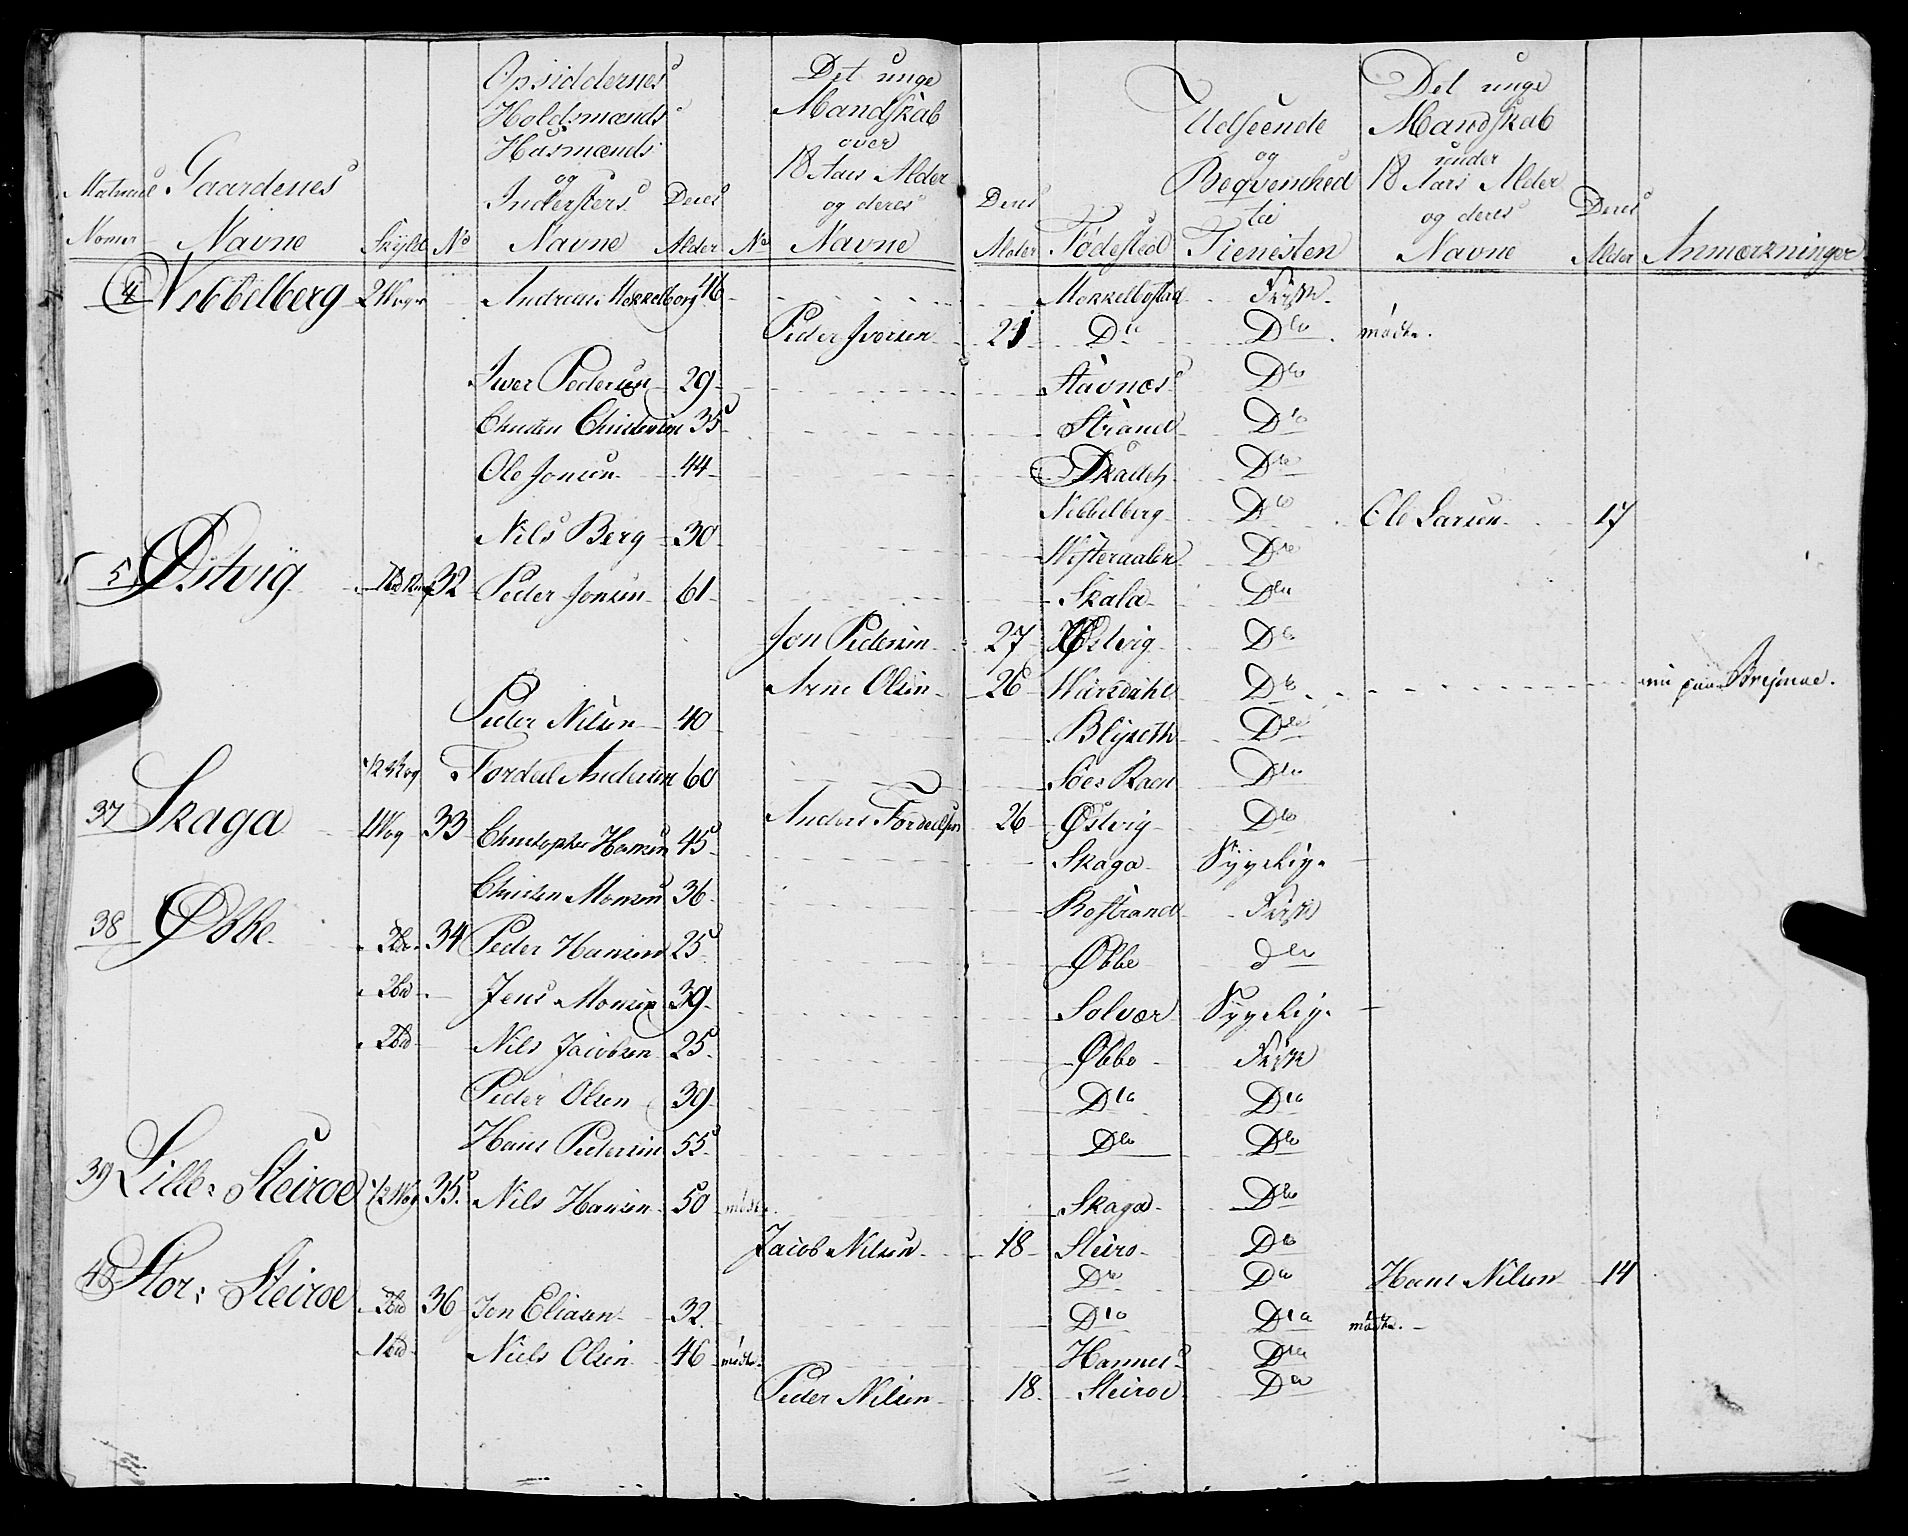 Matricul Nomer | Gaardenes Navne | Skyld | No | Opsiddernes Holdsmænds Husmænds og Inderster's Navne | Deres Alder | No | Det unge Mandskab over 18 Aars Alder og deres Navne | Deres Alder | Fødested | Udseende og Beqvemhed til Tienisten | Det unge Mandskab under 18 Aars Alder og deres Navne | Deres Alder | Anmærkninger
4 Nebbelberg | Andreas Mekkelborg 46 | Mekkelbostad | Frisk
Peder Iversen 21 | Do | Do | mødte.
Iver Pedersen 29 | Stavnes | Do
Christen Christensen 35 | Strand | Do
Ole Jonsen 44 | Do
Nebbelberg | Do | Ole Larsen 17
Nils Berg 30 | Westeraalen | Do
5 Østvig | 32 | Peder Jonsen 61 | Skala | Dto
Jon Pedersen 27 | Østvig | Do
Arne Olsen 26 | Do
Peder Nilsen 40 | Do
1/2 Vog | Tordeel Andersen 60 | Dto
Anders Tordeelsen 26 | Østvig | Do
37 Skaga | 1 Vog | 33 | Christopher Hansen 45 | Skaga | Sygelig.
Christen Monsen 36 | Rostrand | Frisk
38 Øbbe | 34 | Peder Hansen 25 | Øbbe | dto
2bd | Jens Monsen 39 | Solvær | Sygelig.
2bd | Nils Jacobsen 25 | Øbbe | Frisk
Peder Olsen 39 | Dto | Dto
Hans Pedersen 55 | Do | Do
39 Lille Steiroe | 1/2 Vog | 35 | Nils Hansen 50 | mødte. | Skaga | Do
Jacob Nilsen 18 | Steiro | Do
Do | Do | Hans Nilsen 14
40 Stor Steiroe | 2bd | 36 | Jon Eliasen 32 | Dto | Dto | mødte.
1bd | Niels Olsen 46 | mødte. | Hannes | Dto
Peder Nilsen 18 | Steiroe | Do